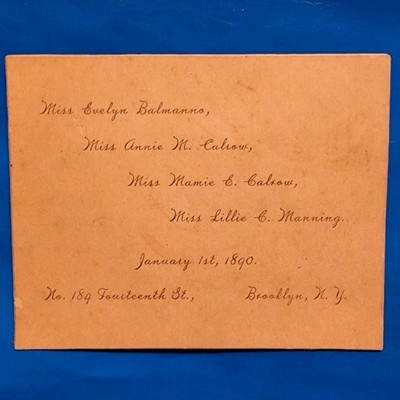 Miss Evelyn Balmanno,
Miss Annie M. Calrow,
Miss Mamie E. Calrow,
Miss Lillie C. Manning.
January 1st, 1890.
No. 189 Fourteenth St., Brooklyn, N. Y.